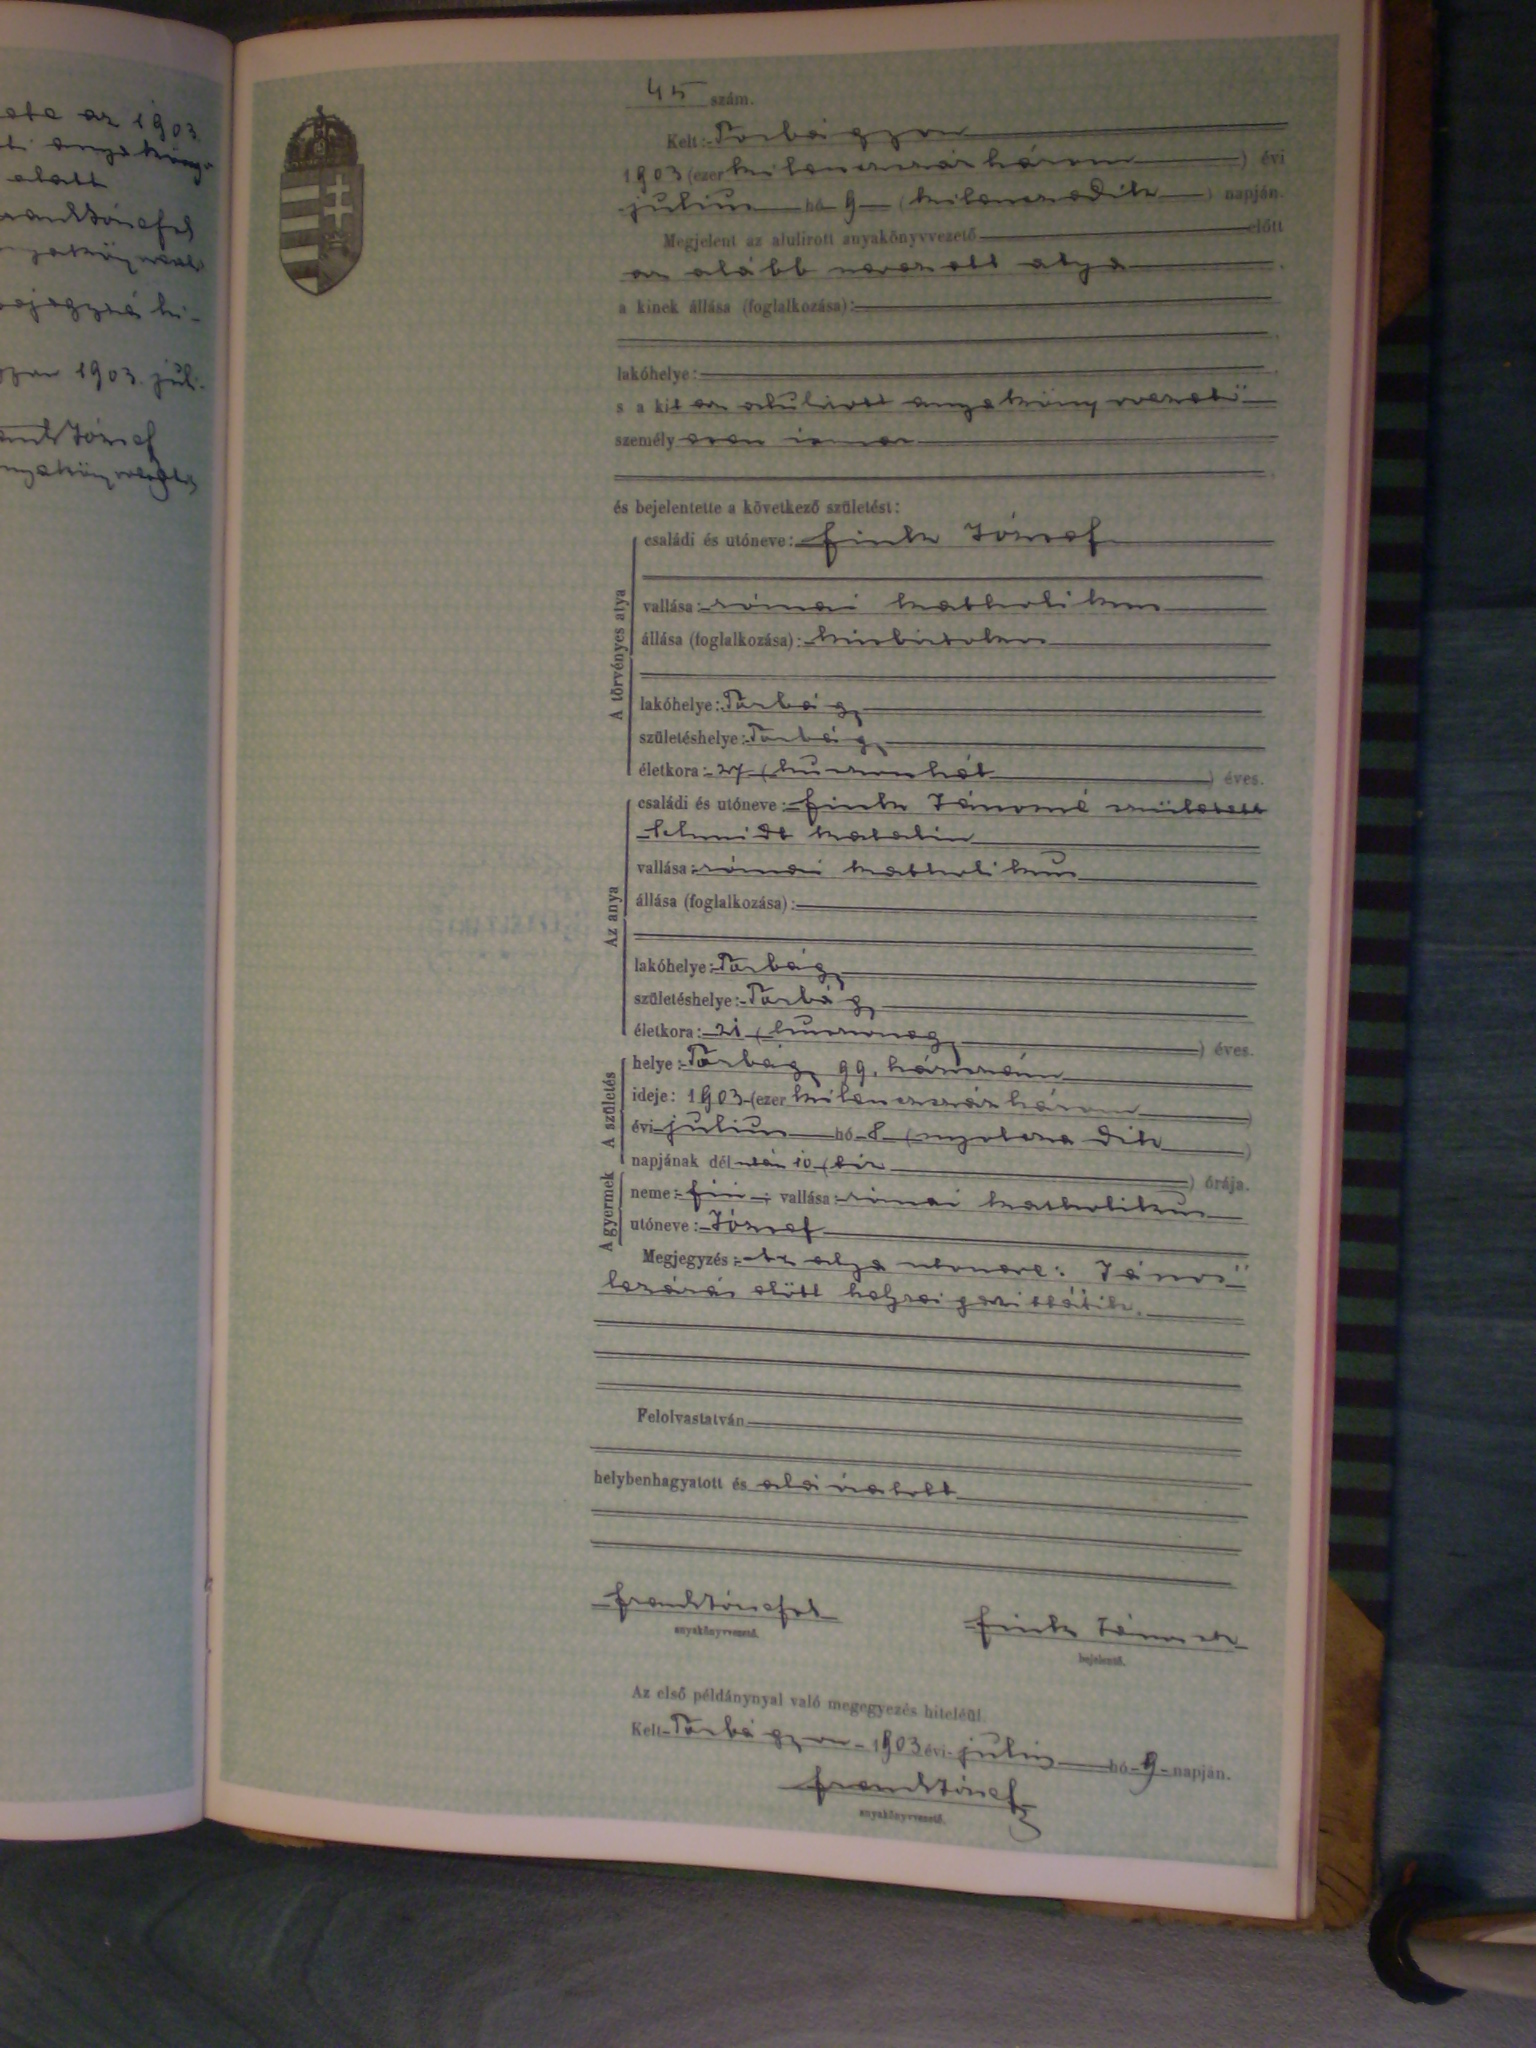 ete az 1903.
ti anyaköny-
alatt
1903. juli-
45 szám.
Kelt: Torbágyon
1903 (ezer kilenczszázhárom ) évi
julius hó 9 (kilenczedik ) napján.
Megjelent az alulirott anyakönyvvezető előtt
az alább nevezett atya
a kinek állása (foglalkozása):
lakóhelye:
s a kit az alulirott anyakönyvvezető
személyesen ismer
és bejelentette a következő születést:
A törvényes atya
családi és utóneve: Fink József
vallása: római katholikus
állása (foglalkozása): kisbirtokos
lakóhelye: Torbágy
születéshelye: Torbágy
életkora: 27 (huszonhét ) éves.
Az anya
családi és utóneve: Fink Jánosné született
Schmidt Katalin
vallása: római katholikus
állása (foglalkozása):
lakóhelye: Torbágy
születéshelye: Torbágy
életkora: 21 (huszonegy ) éves.
A születés
helye: Torbágy 99. házszám
ideje: 1903 (ezer kilenczszázhárom )
évi julius hó 8 (nyolcza dik )
napjának délután 10 (tíz ) órája.
A gyermek
neme: fiú ; vallása: római katholikus
utóneve: József
Megjegyzés: Az atya utoneve: „János"
lezárás előtt helyreigazittátik.
Felolvastatván
helybenhagyatott és aláíratott
anyakönyvvezető.
Fink János
bejelentő.
Az első példánynyal való megegyezés hiteléül
Kelt Torbágyon 1903 évi julius hó 9 napján.
anyakönyvvezető.